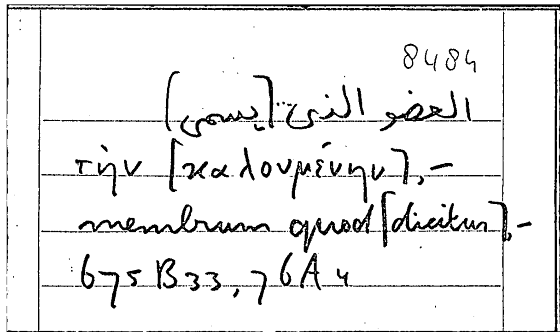 8484
العضو الذى [يسمى]
τὴν [καλουμένην],–
membrum quod [dicitur],–
675B33, 76A4